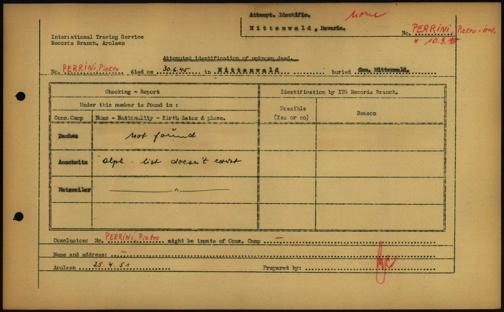 Attempt. Identific.
Mittenwald, Bavaria.
none
No. PERRINI Pietro
* 10.3.
International Tracing Service
Records Branch, Arolsen
Attempted identification of unknown dead.
No. PERRINI Pietro died on 30.4.45 in Mittenwald buried Com. Mittenwald.
Checking - Report
Identification by ITS Records Branch.
Under this number is found in :
Possible
(Yes or no)
Reason
Conc.Camp
Name - Nationality - Birth dates & place.
Dachau
not found
Auschwitz
Alph. list doesn't exist
Natzweiler
"
Conclusion: No. PERRINI Pietro might be inmate of Conc. Camp —
Name and address:
Arolsen 25.4.51
Prepared by: